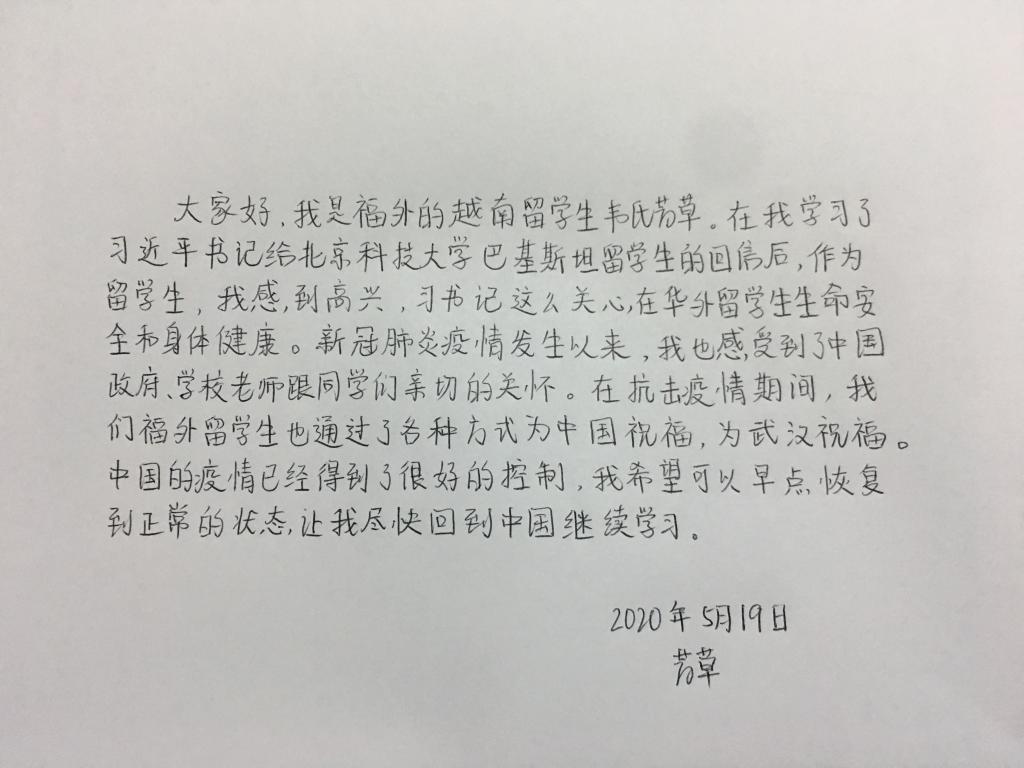 大家好，我是福外的越南留学生韦氏芳草。在我学习了
习近平书记给北京科技大学巴基斯坦留学生的回信后，作为
留学生，我感到高兴，习书记这么关心在华外留学生生命安
全和身体健康。新冠肺炎疫情发生以来，我也感受到了中国
政府、学校老师跟同学们亲切的关怀。在抗击疫情期间，我
们福外留学生也通过了各种方式为中国祝福，为武汉祝福。
中国的疫情已经得到了很好的控制，我希望可以早点恢复
到正常的状态，让我尽快回到中国继续学习。
2020年5月19日
芳草